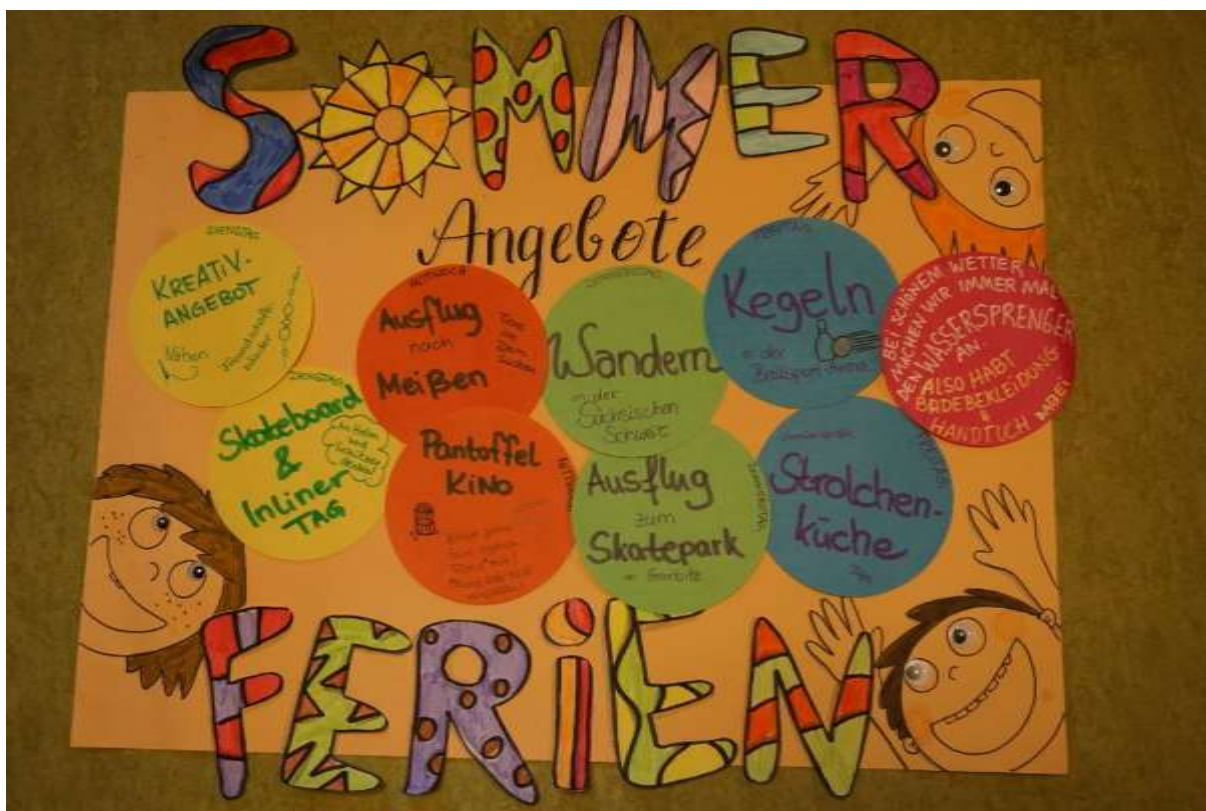 SOMMER
Angebote
DIENSTAG
KREATIV-
ANGEBOT
Nähen
DIENSTAG
Skateboard
&
Inliner
TAG
MITTWOCH
Ausflug
nach
Meißen
MITTWOCH
Pantoffel
KiNO
DONNERSTAG
Wandern
in der
Sächsischen
Schweiz
DONNERSTAG
Ausflug
zum
Skatepark
in Gorbitz
FREITAG
Kegeln
in der
FREITAG
Strolchen-
küche
BEI SCHÖNEM WETTER
MACHEN WIR IMMER MAL
DEN WASSERSPRENGER
AN
ALSO HABT
BADEBEKLEIDUNG
&
HANDTUCH DABEI
FERiEN